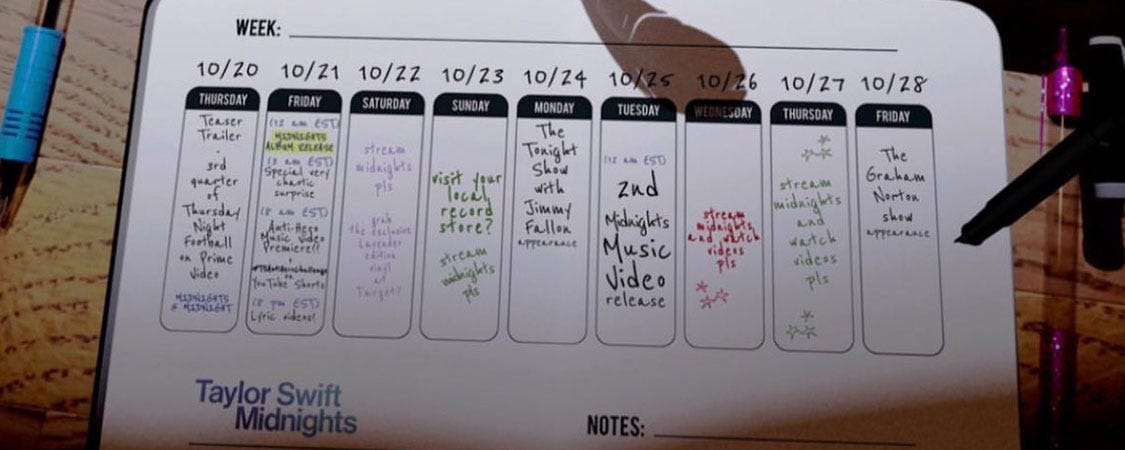 WEEK:
10/20 10/21 10/22 10/23 10/24 10/25 10/26 10/27 10/28
THURSDAY
Teaser
Trailer
-
3rd
quarter
of
Thursday
Night
Football
on Prime
Video
MIDNIGHTS
@ MIDNIGHT
FRIDAY
(12 am EST)
MIDNIGHTS
ALBUM RELEASE
(3 am EST)
Special very
chaotic
surprise
(8 am EST)
Anti-Hero
Music Video
Premiere!!
+
#TSAntiHeroChallenge
on
YouTube Shorts
(8 pm EST)
Lyric videos!
SATURDAY
stream
midnights
pls
grab
the exclusive
Lavender
edition
vinyl
at
Target?
SUNDAY
visit your
local
record
store?
stream
midnights
pls
MONDAY
The
Tonight
Show
with
Jimmy
Fallon
appearance
TUESDAY
(12 am EST)
2nd
Midnights
Music
Video
release
WEDNESDAY
stream
midnights
and watch
videos
pls
THURSDAY
stream
midnights
and
watch
videos
pls
FRIDAY
The
Graham
Norton
show
appearance
Taylor Swift
Midnights
NOTES: